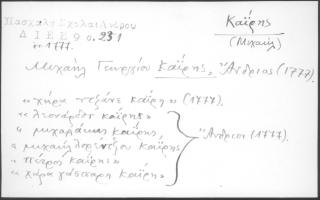 Πασχάλη Σχολαι Άνδρου
Δ Ι Ε Ε 9 σ. 231
ἐν 1777.
Καΐρης
(Μιχαήλ)
Μιχαήλ Γεωργίου Καΐρης, Ἄνδριος (1777).
"χήρα τζάνε καΐρη" (1777).
"λεονάρδος καΐρης"
"μιχαλάκης καΐρης,
"μιχαήλ λορέντζου καΐρης
"πέτρος καΐρης"
"χήρα γάσπαρη καΐρη"
Ἄνδριοι (1777).